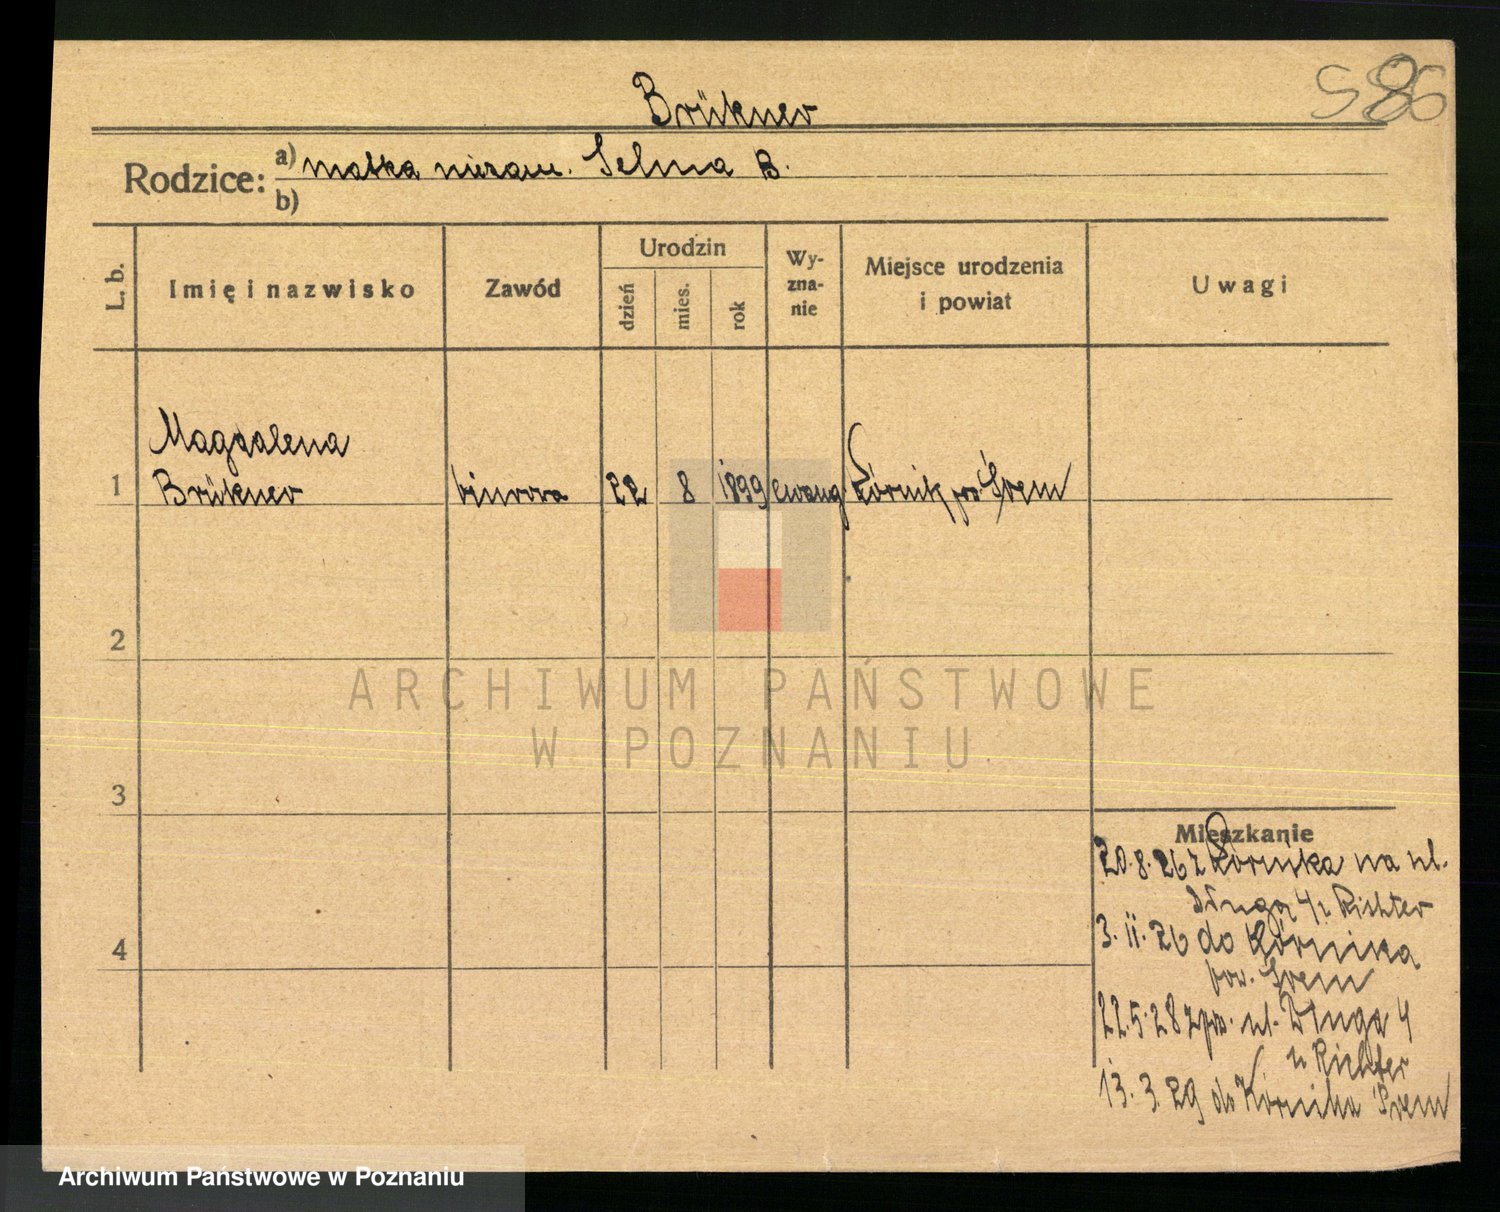 586
Brükner
Rodzice: a) matka niezam. Selma B.
b)
L. b.
Imię i nazwisko
Zawód
Urodzin
dzień
mies.
rok
Wy-
zna-
nie
Miejsce urodzenia
i powiat
Uwagi
Magdalena
1 Brükner biurowa 22 8 1899 ewang Kórnik pow Śrem
2
3
4
Mieszkanie
20.8.26 z Kórnika na ul.
Długa 4 u Richter
3.11.26 do Kórnika
pow. Śrem
22.5.28 zpow. ul. Długa 4
u Richter
13.3.29 do Kórnika Śrem
ARCHIWUM PAŃSTWOWE
W POZNANIU
Archiwum Państwowe w Poznaniu